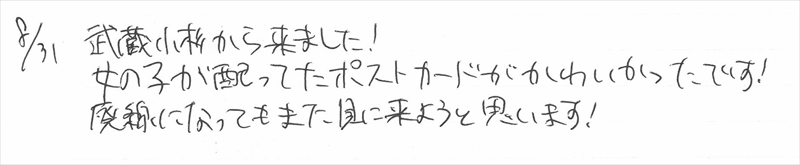 8/31 武蔵小杉から来ました!
女の子が配ってたポストカードがかわいかったです!
廃線になってもまた見に来ようと思います!